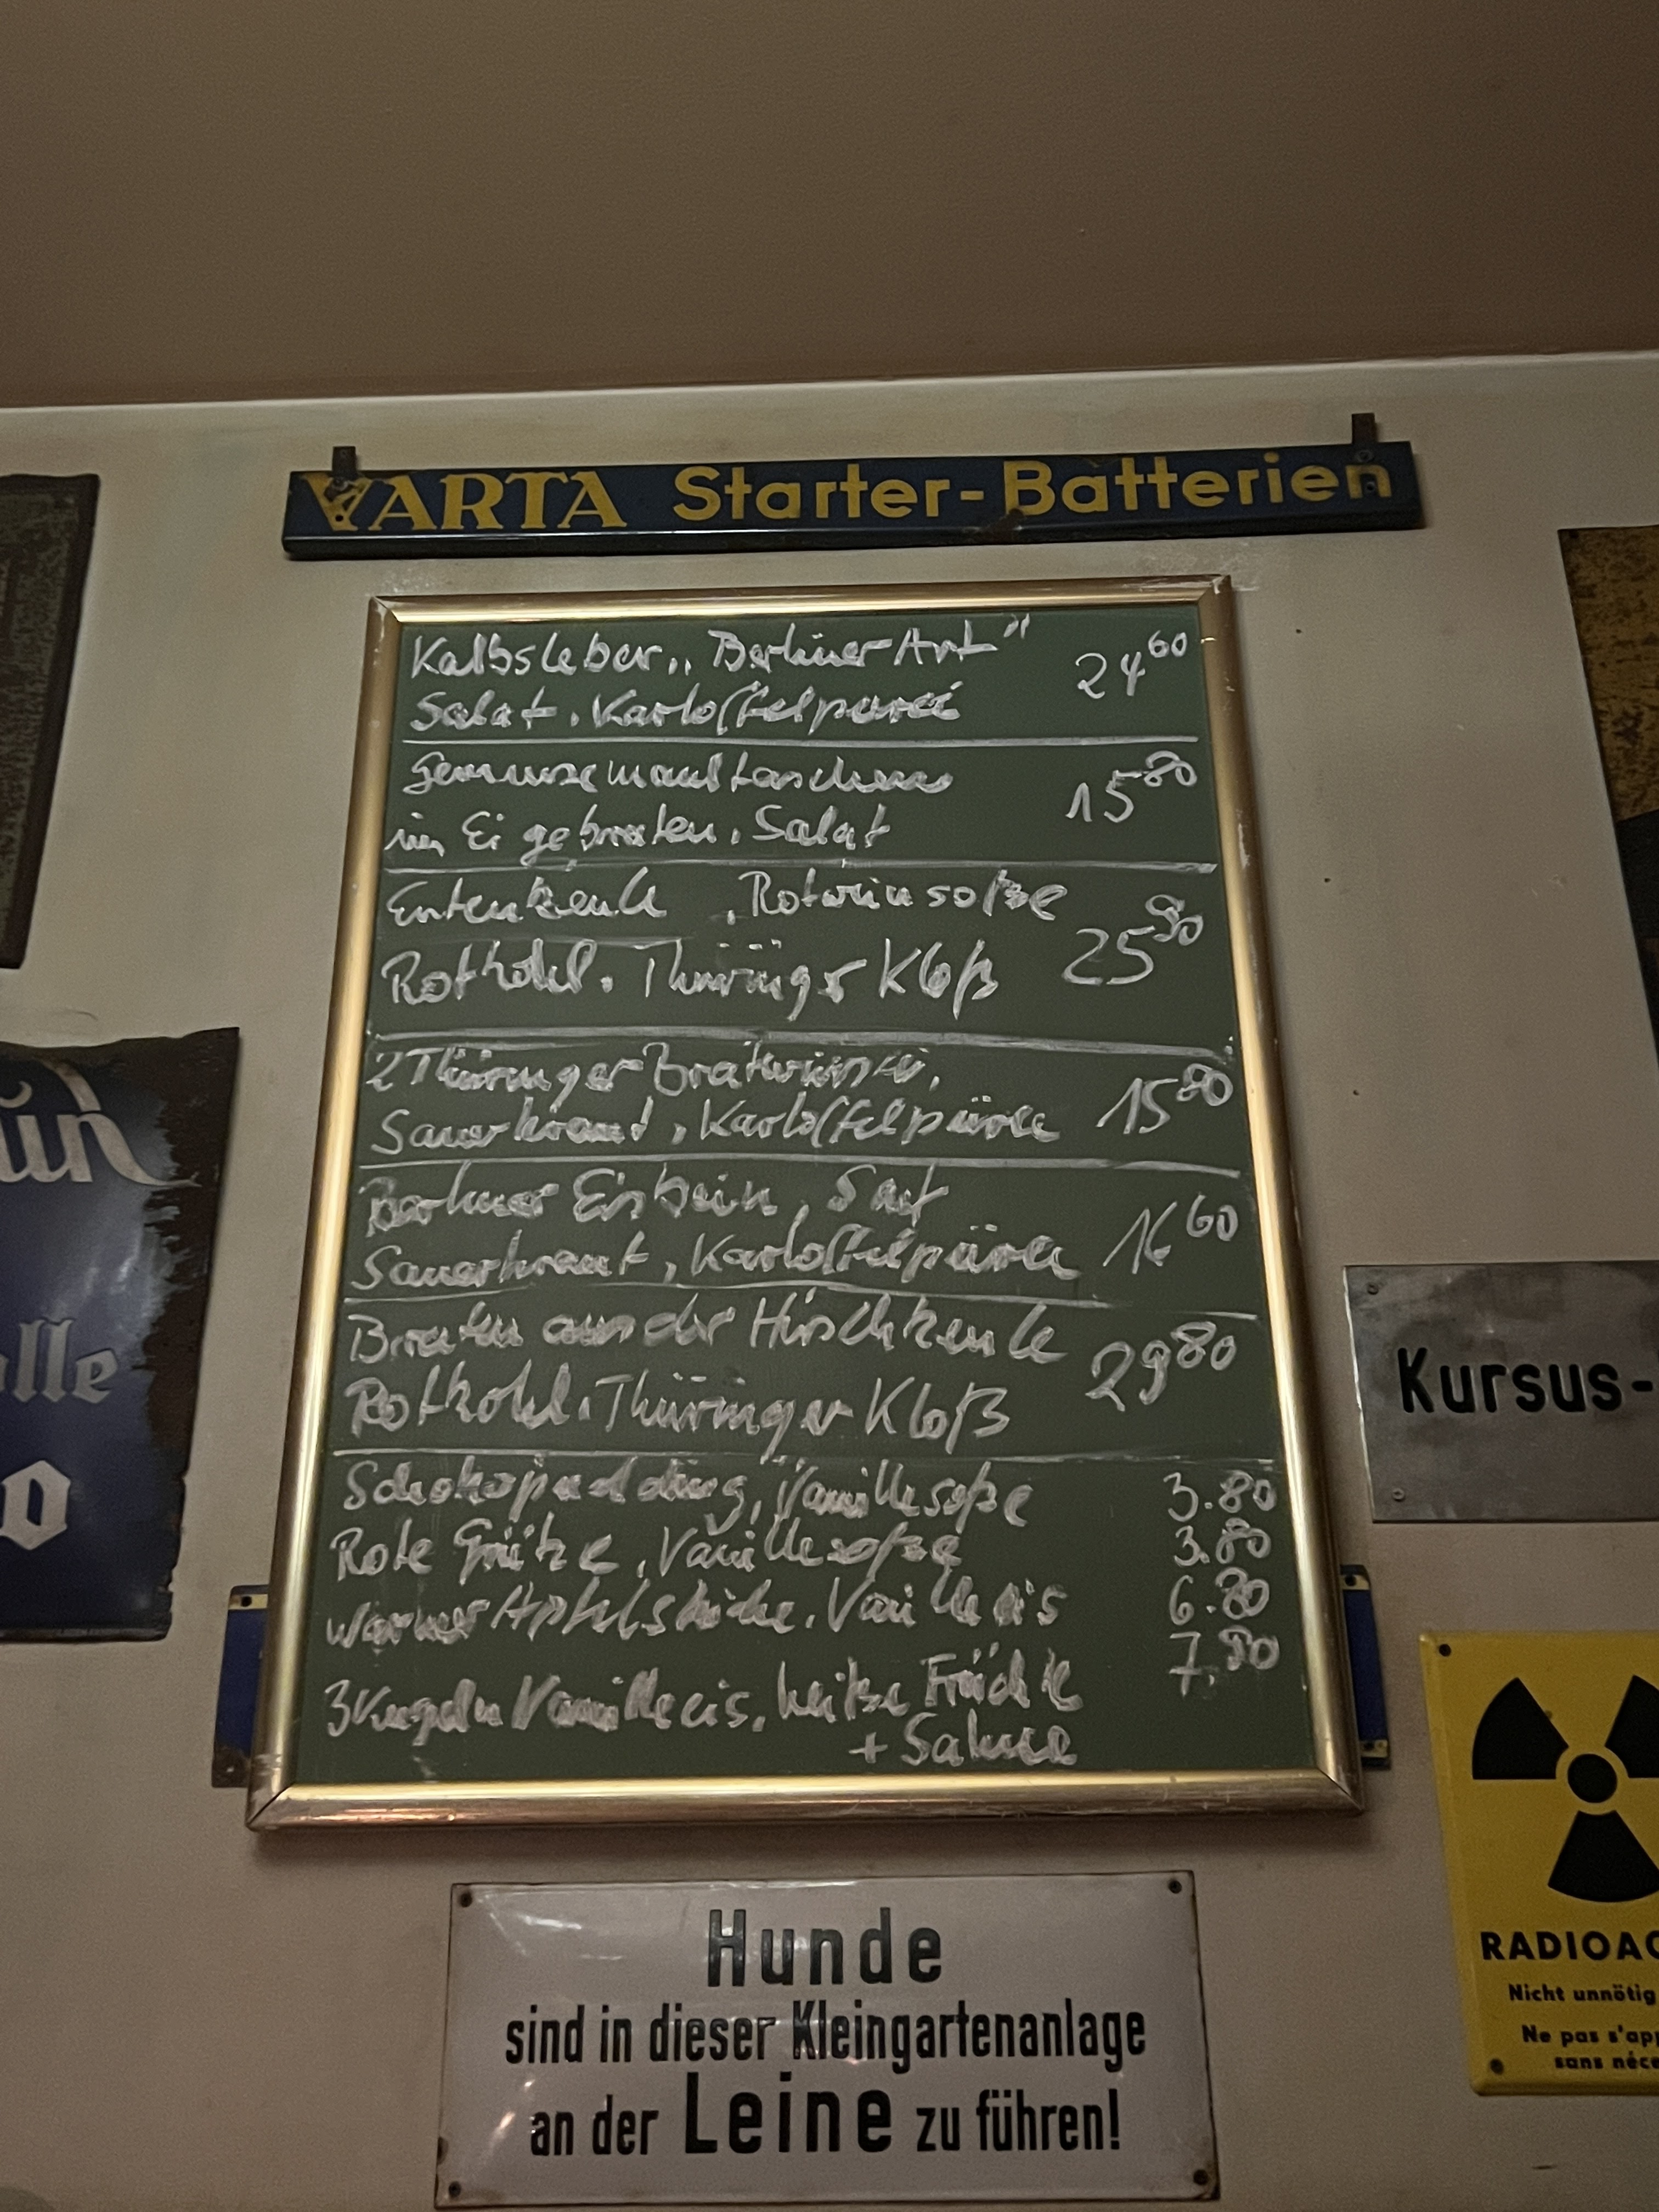 VARTA Starter-Batterien
Kalbsleber „Berliner Art" 24 60
Salat, Kartoffelpüree
Gemüsemaultaschen 15 80
in Ei gebraten, Salat
Entenkeule, Rotweinsoße
Rotkohl, Thüringer Kloß 25
2 Thüringer Bratwürste,
Sauerkraut, Kartoffelpüree 15 80
Berliner Eisbein, Saft
Sauerkraut, Kartoffelpüree 16 60
Braten aus der Hirschkeule 29 80
Rotkohl, Thüringer Kloß
Schokopudding, Vanillesoße 3.80
Rote Grütze, Vanillesoße 3.80
warmer Vanilleeis 6.80
3 Kugeln Vanilleeis, heiße Früchte
+ Sahne
ün
lle
o
Kursus-
Hunde
sind in dieser Kleingartenanlage
an der Leine zu führen!
RADIOAC
Nicht unnötig
Ne pas s'app
sans néce